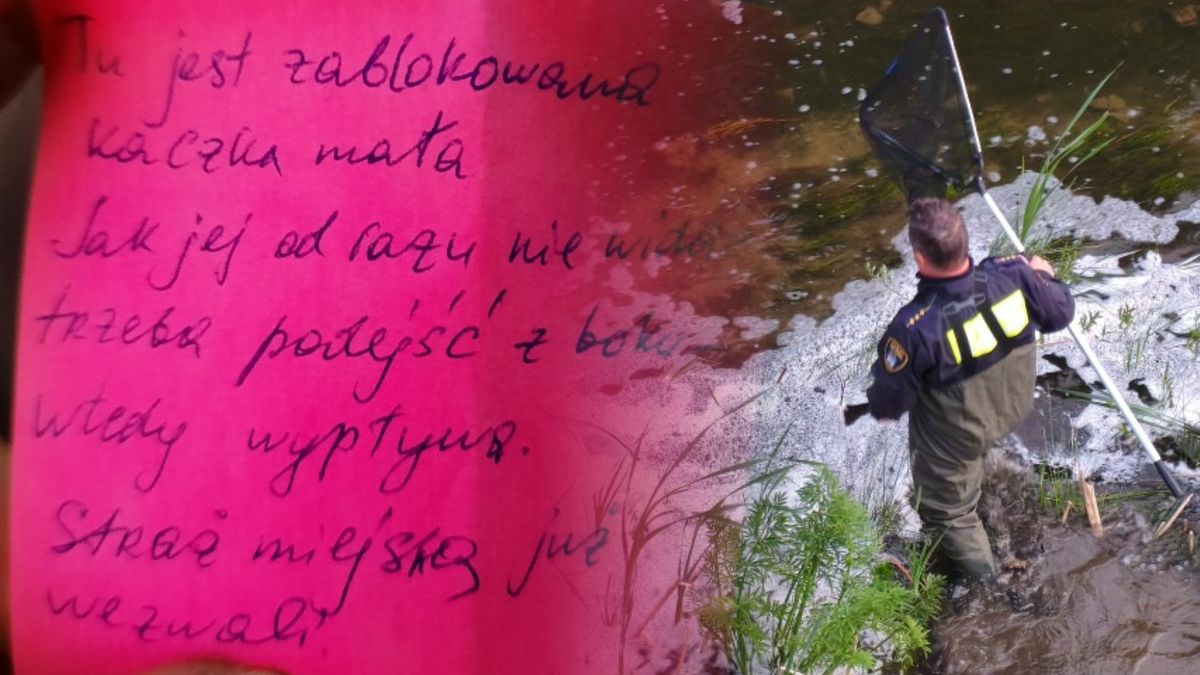 Tu jest zablokowana
kaczka mała
Jak jej od razu nie widać
trzeba podejść z boku
wtedy wypływa.
Straż miejską już
wezwali